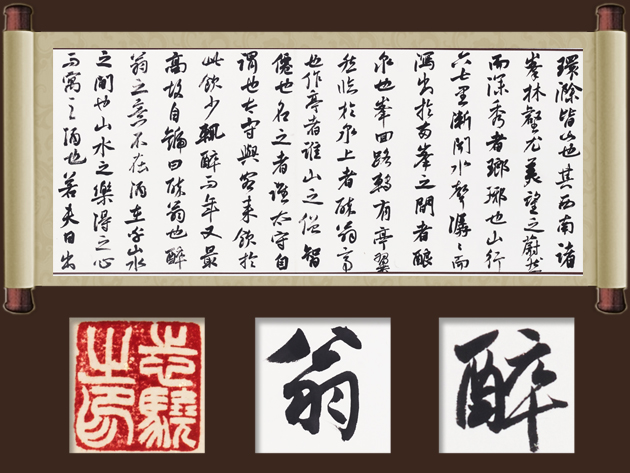 環滁皆山也其西南諸
峯林壑尤美望之蔚然
而深秀者瑯琊也山行
六七里漸聞水聲潺々而
瀉出於兩峯之間者釀
泉也峯回路轉有亭翼
然臨於泉上者醉翁亭
也作亭者誰山之僧智
僊也名之者誰太守自
謂也太守與客來飲於
此飲少輒醉而年又最
高故自號曰醉翁也醉
翁之意不在酒在乎山水
之間也山水之樂得之心
而寓之酒也若夫日出
醉
翁
志驍
之印